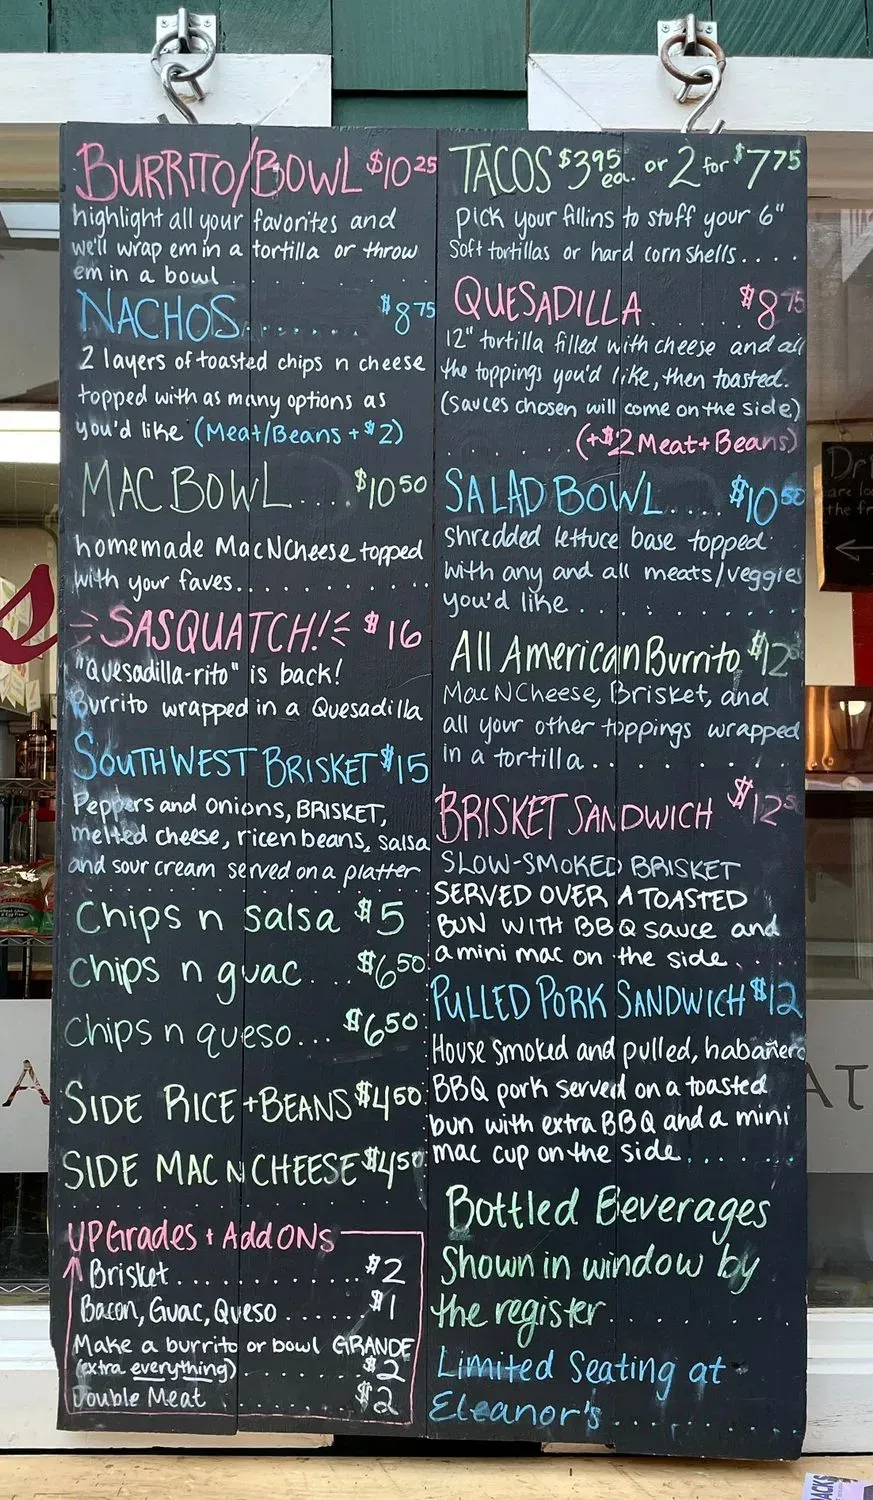 BURRITO/BOWL $10 25
highlight all your favorites and
we'll wrap em in a tortilla or throw
em in a bowl . . . . . . .
NACHOS . . . . . . . $8 75
2 layers of toasted chips n cheese
topped with as many options as
you'd like (Meat/Beans + $2)
MAC BOWL . . . $10 50
homemade MacNCheese topped
with your faves. . . . . . . . . . . .
SASQUATCH! $16
"Quesadilla-rito" is back!
Burrito wrapped in a Quesadilla
SOUTHWEST BRISKET $15
Peppers and onions, BRISKET,
melted cheese, rice n beans, salsa
and sour cream served on a platter
Chips n salsa $5
Chips n guac . . . $6 50
Chips n queso . . . $6 50
SIDE RICE + BEANS $4 50
SIDE MAC N CHEESE $4 50
UPGrades + Add ONs
Brisket . . . . . . . . . . . . . $2
Bacon, Guac, Queso . . . . . . $1
Make a burrito or bowl GRANDE
(extra everything) . . . . . . . . $2
Double Meat . . . . . . . . . $2
TACOS $3 95 ea. or 2 for $7 75
pick your fillins to stuff your 6"
Soft tortillas or hard corn shells . . . .
QUESADILLA . . . . . $8 75
12" tortilla filled with cheese and all
the toppings you'd like, then toasted.
(sauces chosen will come on the side)
. . . . . . (+$2 Meat + Beans)
SALAD BOWL . . . . $10 50
Shredded lettuce base topped
with any and all meats/veggies
you'd like . . . . . . . . . .
All American Burrito $12
MacNCheese, Brisket, and
all your other toppings wrapped
in a tortilla . . . . . . . .
BRISKET SANDWICH $12
SLOW-SMOKED BRISKET
SERVED OVER A TOASTED
BUN WITH BBQ sauce and
a mini mac on the side . . .
PULLED PORK SANDWICH $12
House smoked and pulled, habañero
BBQ pork served on a toasted
bun with extra BBQ and a mini
mac cup on the side . . . . . . .
Bottled Beverages
Shown in window by
the register . . . . . . .
Limited Seating at
Eleanor's . . . . . .